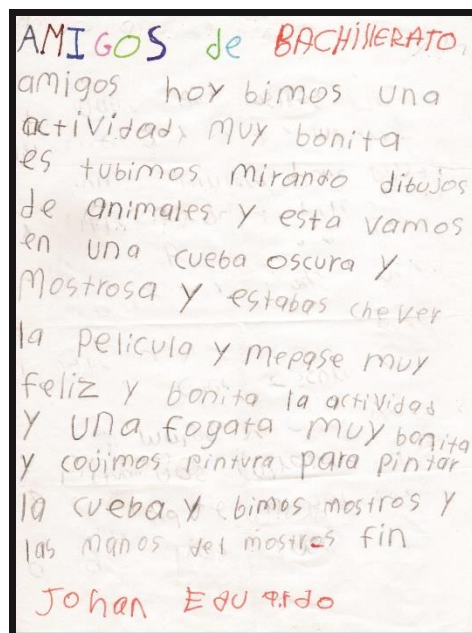 AMIGOS de BACHIllERATO
amigos hoy bimos una
actividad muy bonita
es tubimos mirando dibujos
de animales y esta vamos
en una cueba oscura y
Mostrosa y estabas che ver
la pelicula y mepase muy
feliz y bonita la actividad
y una fogata muy bonita
y cojimos pintura para pintar
la cueba y bimos mostros y
las manos del mostros fin
Johan Eduardo